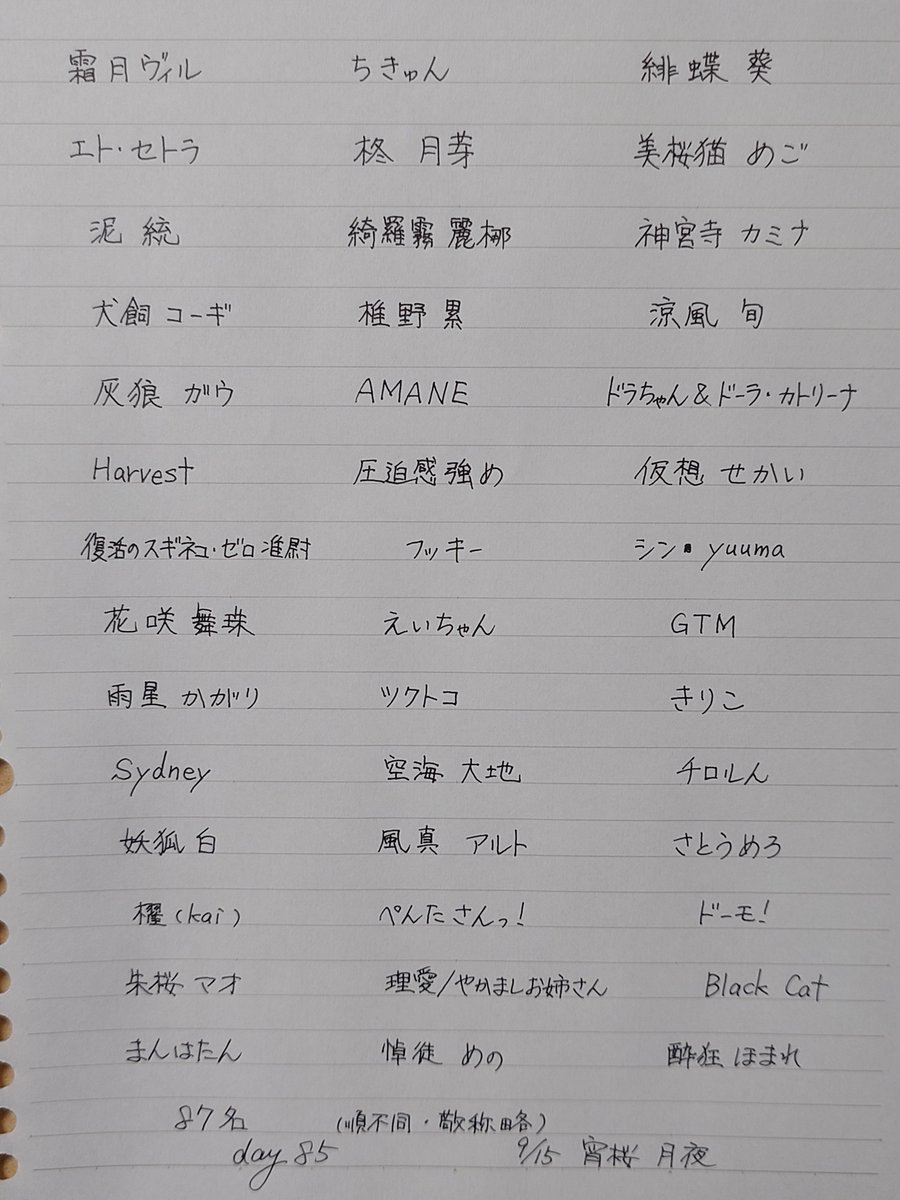 霜月ヴィル ちきゅん 緋蝶 葵
エト・セトラ 柊 月芽 美桜猫 めご
泥 統 綺羅霧 麗梛 神宮寺 カミナ
犬飼 コーギ 椎野 累 涼風 旬
灰狼 ガウ AMANE ドラちゃん&ドーラ・カトリーナ
Harvest 圧迫感強め 仮想 せかい
復活のスギネコ・ゼロ准尉 フッキー シン・yuuma
花咲 舞珠 えいちゃん GTM
雨星 かがり ツクトコ きりこ
Sydney 空海 大地 チロルん
妖狐 白 風真 アルト さとうめろ
櫂(kai) ぺんたさんっ! ドーモ!
朱桜 マオ 理愛/やかましお姉さん Black Cat
まんはたん 悼徒 めの 酔狂 ほまれ
87名 (順不同・敬称略)
day 85 9/15 宵桜 月夜